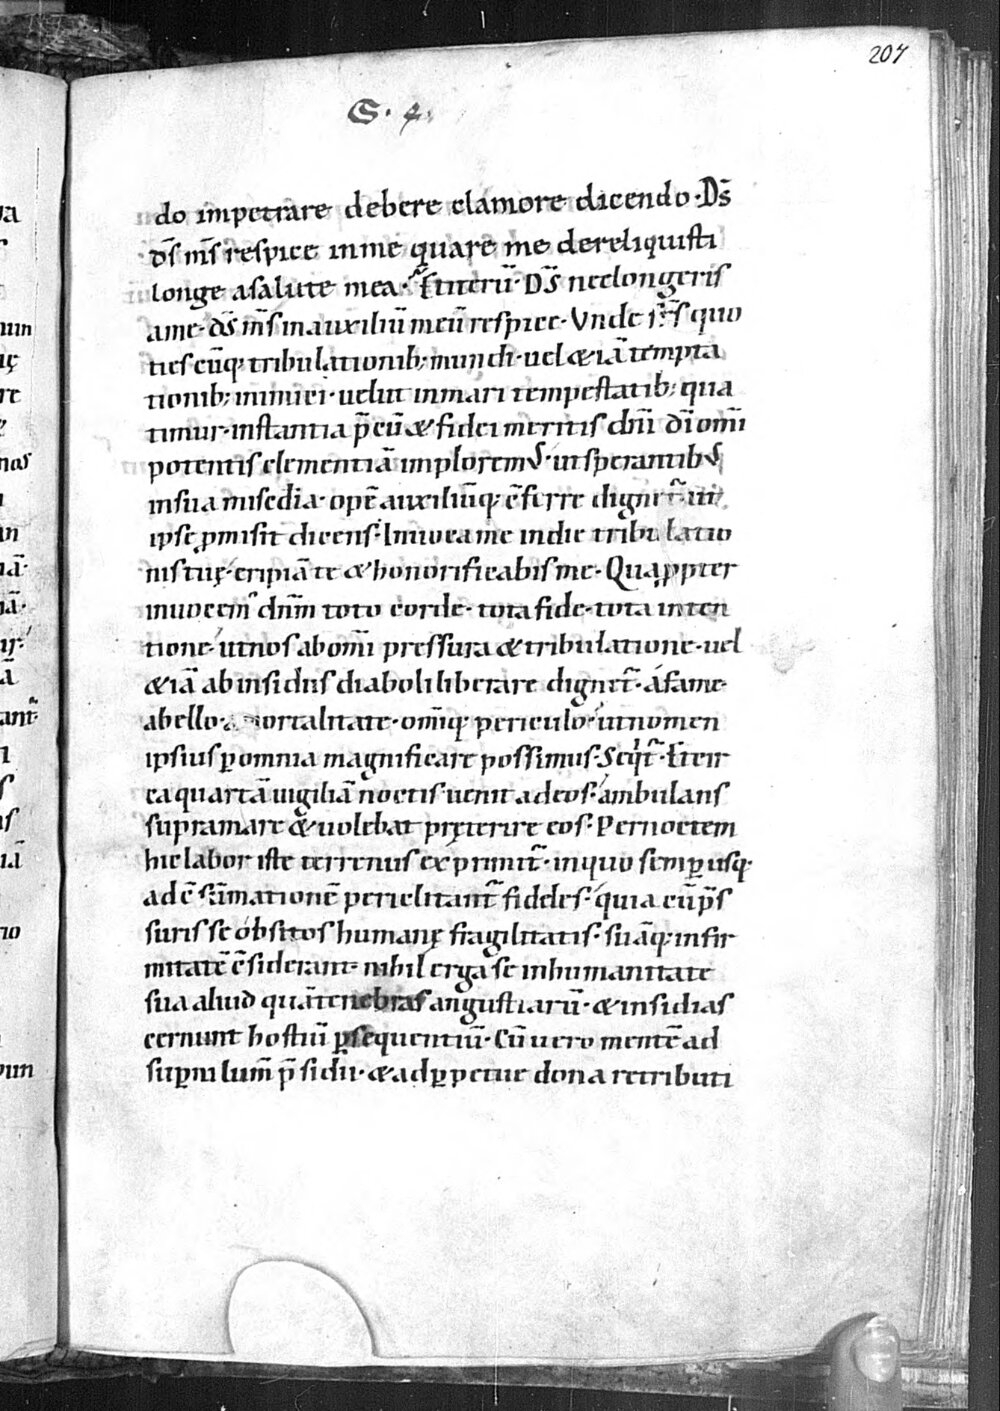 207
S. 4.
do impetrare debere clamore dicendo· Ds̄
ds̄ ms̄ respice inme quare me dereliquisti
longe asalute mea· Etiterū· Ds̄ neelongeris
ame· ds̄ ms̄ inauxiliū meū respice· Vnde fr̄s quo
tiescūq; tribulationib; mundi· uel &iā tempta
tionib; inimici· uelut inmari tempestatib; qua
timur· instantia p̄cū & fidei meritis dn̄i dī om̄i
potentis clementiā imploremꝰ· ut sperantibꝰ
insua misc̄dia· opē auxiliūq; c̄ferre dignet̄·
ipse ꝓmisit dicens· Inuoca me indie tribulatio
nis tuę· eripiā te & honorificabis me· Quaꝓpter
inuocemꝰ dn̄m toto corde· tota fide· tota inten
tione· utnos abom̄i pressura & tribulatione· uel
&iā ab insidiis diaboli liberare dignet̄· áfame·
abello· a mortalitate· om̄iq; periculo· utnomen
ipsius ꝑomnia magnificare possimus· Seq̇t̄· Et cir
ca quartā uigiliā noctis uenit adeos· ambulans
supramare & uolebat pręterire eos· Pernoctem
hic labor iste terrenus exprimit̄· inquo semꝑ usq;
adc̄sūmationē periclitant̄ fideles· quia cū p̄s
suris se óbsitos humanę fragilitatis· suāq; infir
mitatē c̄siderant· nihil erga se inhumanitate
sua aliud quā tenebras angustiarū· & insidias
cernunt hostiū ꝑsequentiū· Cū uero mentē ad
suꝑni lum̄ p̄sidii· & adꝑpetue dona retributi